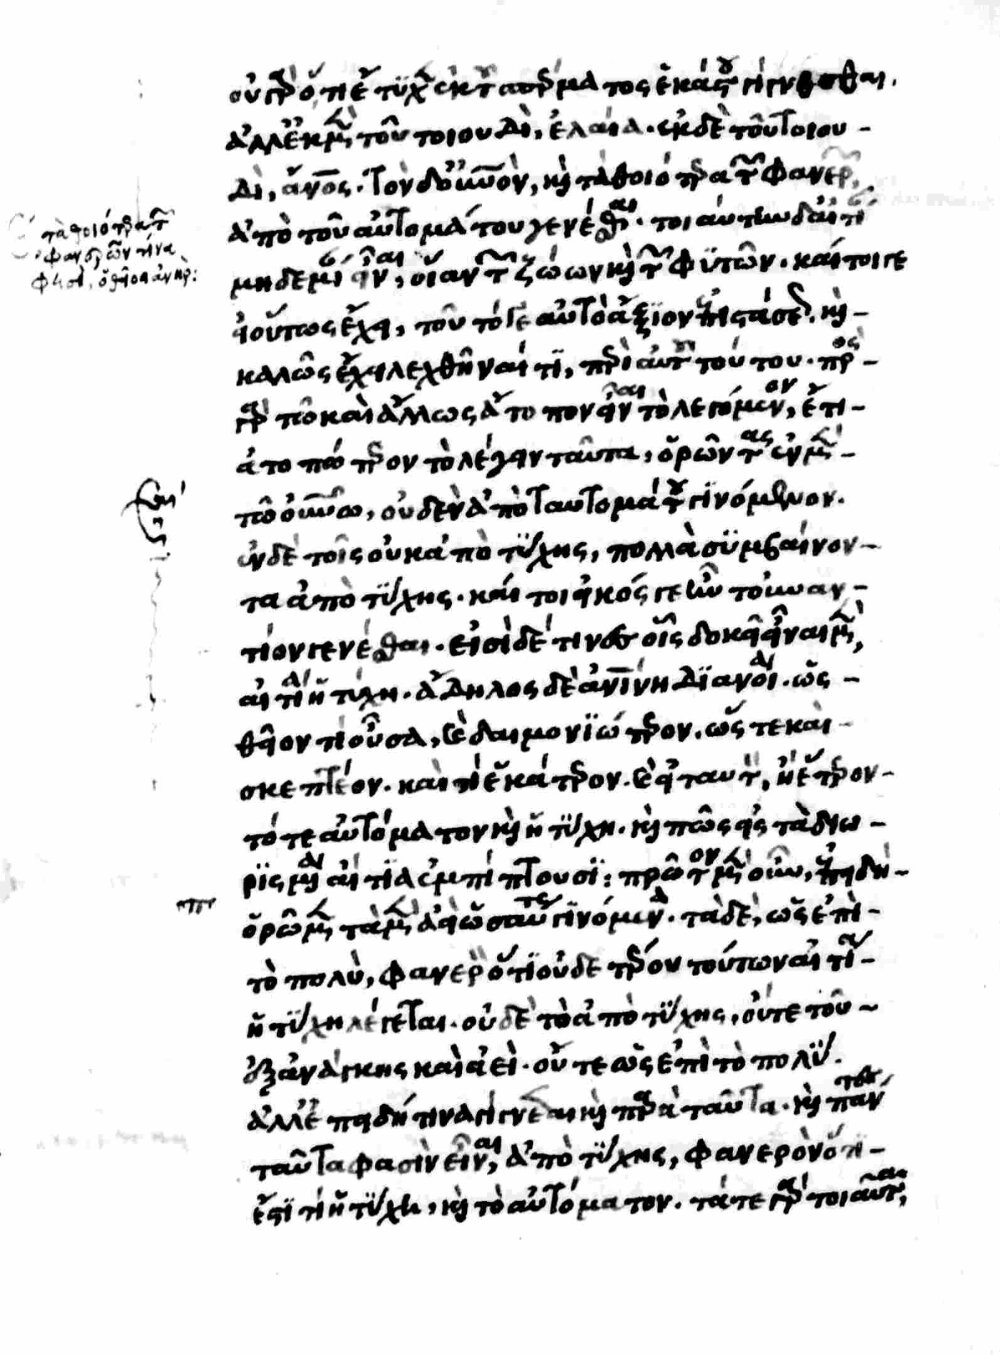 οὐ γὰρ ὅ, τι ἔτυχεν ἐκ τοῦ σπέρματος ἑκάστου γίγνεσθαι.
ἀλλ' ἐκ μὲν τοῦ τοιουδὶ, ἐλαία. ἐκ δὲ τοῦ τοιου-
δὶ, ἄνος. τὸν δ' οὐνὸν, κὴ τὰ θειότερα τῶν φανερῶν,
ἀπὸ τοῦ αὐτομάτου γενέσθαι. τοιαύτην δ' αἰτί
μηδεμίαν εἶναι, οἵαν τῶν ζώων κὴ τῶν φυτῶν. καί τοι γε
εἰ οὕπως ἔχει, τοῦτό γε αὐτὸ ἄξιον ἐπιστάσεως. κὴ-
καλῶς ἔχει λεχθῆναί τι, περὶ αὐτοῦ τούτου. πρὸς-
γὰρ τῶ καὶ ἄλλως ἄτοπον εἶναι τὸ λεγόμενον, ἔτι-
ἀτοπώτερον τὸ λέγειν ταῦτα, ὁρῶντας ἐν μὲν-
τῶ οὐνῶ, οὐδὲν ἀπὸ ταυτομάτου γινόμενον.
ἐν δὲ τοῖς οὐκ ἀπὸ τύχης, πολλὰ συμβαίνον-
τα ἀπὸ τύχης. καί τοι εἰκός γε ἦν τοὐναν-
τίον γενέσθαι. εἰσὶ δέ τινες οἷς δοκεῖ εἶναι μὲν,
αἰτία ἡ τύχη. ἄδηλος δὲ ἀνίνη διανοία. ὡς-
θεῖόν τι οὖσα, κὴ δαιμονιώτερον. ὥστε καὶ-
σκεπτέον. καὶ τί ἑκάτερον. κὴ εἰ ταυτὸ, ἢ ἕτερον-
τό τε αὐτόματον κὴ ἡ τύχη. κὴ πῶς εἰς τὰ διω-
ρισμένα αἴτια ἐμπίπτουσι: πρῶτον μὲν οὖν, ἐπειδὴ-
ὁρῶμεν τὰ μὲν ἀεὶ ὡσαύτως γινόμενα. τὰ δὲ, ὡς ἐπὶ-
τὸ πολὺ, φανερὸν ὅτι οὐδετέρου τούτων αἰτία-
ἡ τύχη λέγεται. οὐδὲ τὸ ἀπὸ τύχης, οὔτε τοῦ-
ἐξ ἀνάγκης καὶ ἀεὶ. οὔτε ὡς ἐπὶ τὸ πολύ.
ἀλλ' ἐπειδή τινα γίγνεται κὴ παρὰ ταῦτα. κὴ πάντες
ταῦτα φασὶν εἶναι, ἀπὸ τύχης, φανερὸν ὅτι-
ἔστι τί ἡ τύχη, κὴ τὸ αὐτόματον. τά τε γὰρ τοιαῦτα,
τὰ θειότερα τῶν
φανερῶν τινα
φησὶ,